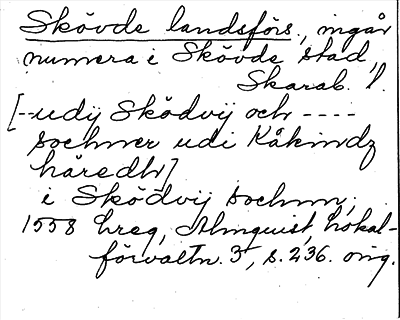 Skövde landsförs., ingår
numera i Skövde stad,
Skarab. l.
[--udij Sködvij och ----
sochner udi Kåkindz
häredh]
i Sködvij sochnn,
1558 hreg, Almquist, Lokal-
förvaltn. 3, s. 236. orig.